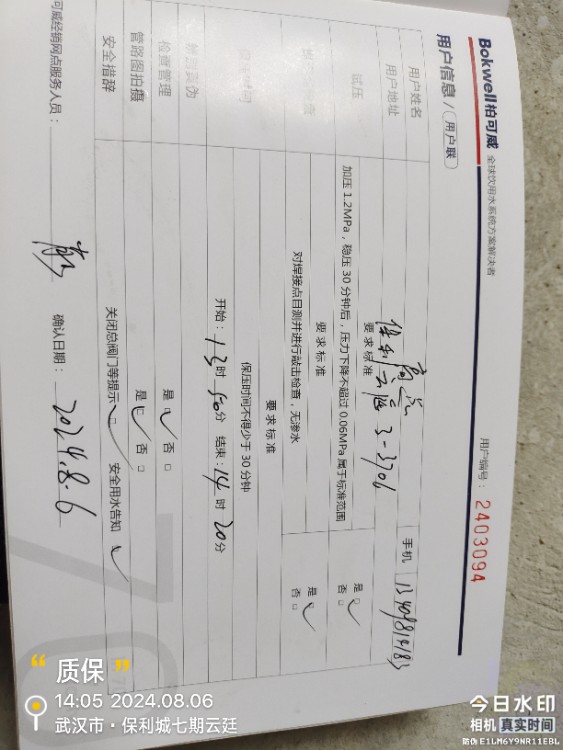 Bokwell柏可威 全球饮用水系统方案解决者
用户信息 / 用户联
用户编号： 2403094
用户姓名
手机
用户地址 保利云庭 3-3701
试压
要求标准
加压 1.2MPa，稳压 30 分钟后，压力下降不超过 0.06MPa 属于标准范围
是 □ 否 □
要求标准
对焊接点目测并进行敲击检查，无渗水
是 □ 否 □
要求标准
保压时间不得少于 30 分钟
开始：13 时 50 分 结束：14 时 20 分
检查管理 是 □ 否 □
管路图拍摄 是 □ 否 □
安全措辞 关闭总阀门等提示 □ 安全用水告知
可威经销网点服务人员：
确认日期： 2024.8.6
“质保”
14:05 2024.08.06
武汉市·保利城七期云廷
今日水印
相机 真实时间
防伪 E1LM6Y9NR11EBL